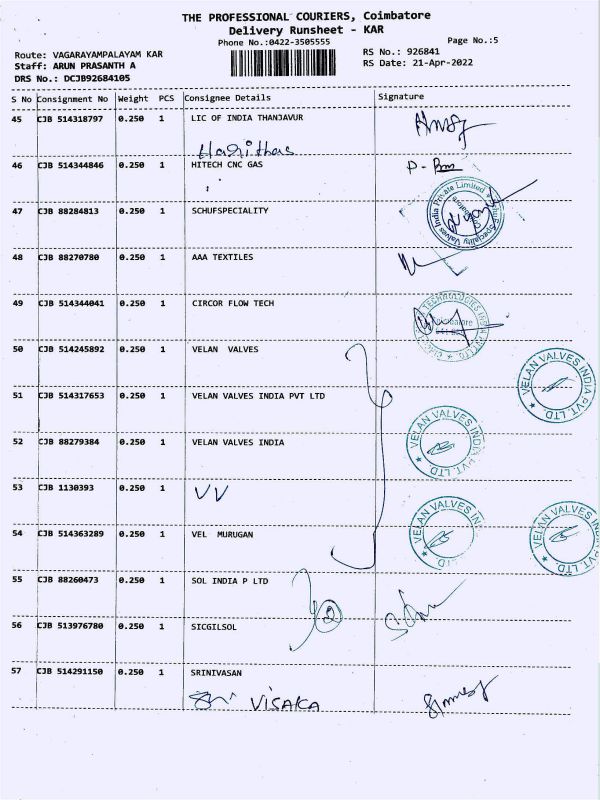 THE PROFESSIONAL COURIERS, Coimbatore
Delivery Runsheet - KAR
Phone No.:0422-3505555
Page No.:5
Route: VAGARAYAMPALAYAM KAR
RS No.: 926841
Staff: ARUN PRASANTH A
RS Date: 21-Apr-2022
DRS No.: DCJB92684105
S No Consignment No Weight PCS Consignee Details Signature
45 CJB 514318797 0.250 1 LIC OF INDIA THANJAVUR
46 CJB 514344846 0.250 1 HITECH CNC GAS
47 CJB 88284813 0.250 1 SCHUFSPECIALITY
48 CJB 88270780 0.250 1 AAA TEXTILES
49 CJB 514344041 0.250 1 CIRCOR FLOW TECH
50 CJB 514245892 0.250 1 VELAN VALVES
VELAN VALVES INDIA PVT. LTD.
51 CJB 514317653 0.250 1 VELAN VALVES INDIA PVT LTD
52 CJB 88279384 0.250 1 VELAN VALVES INDIA
VELAN VALVES INDIA PVT. LTD.
53 CJB 1130393 0.250 1 VV
54 CJB 514363289 0.250 1 VEL MURUGAN
VELAN VALVES INDIA PVT. LTD.
VELAN VALVES INDIA PVT. LTD.
55 CJB 88260473 0.250 1 SOL INDIA P LTD
56 CJB 513976780 0.250 1 SICGILSOL
57 CJB 514291150 0.250 1 SRINIVASAN
VISAKA